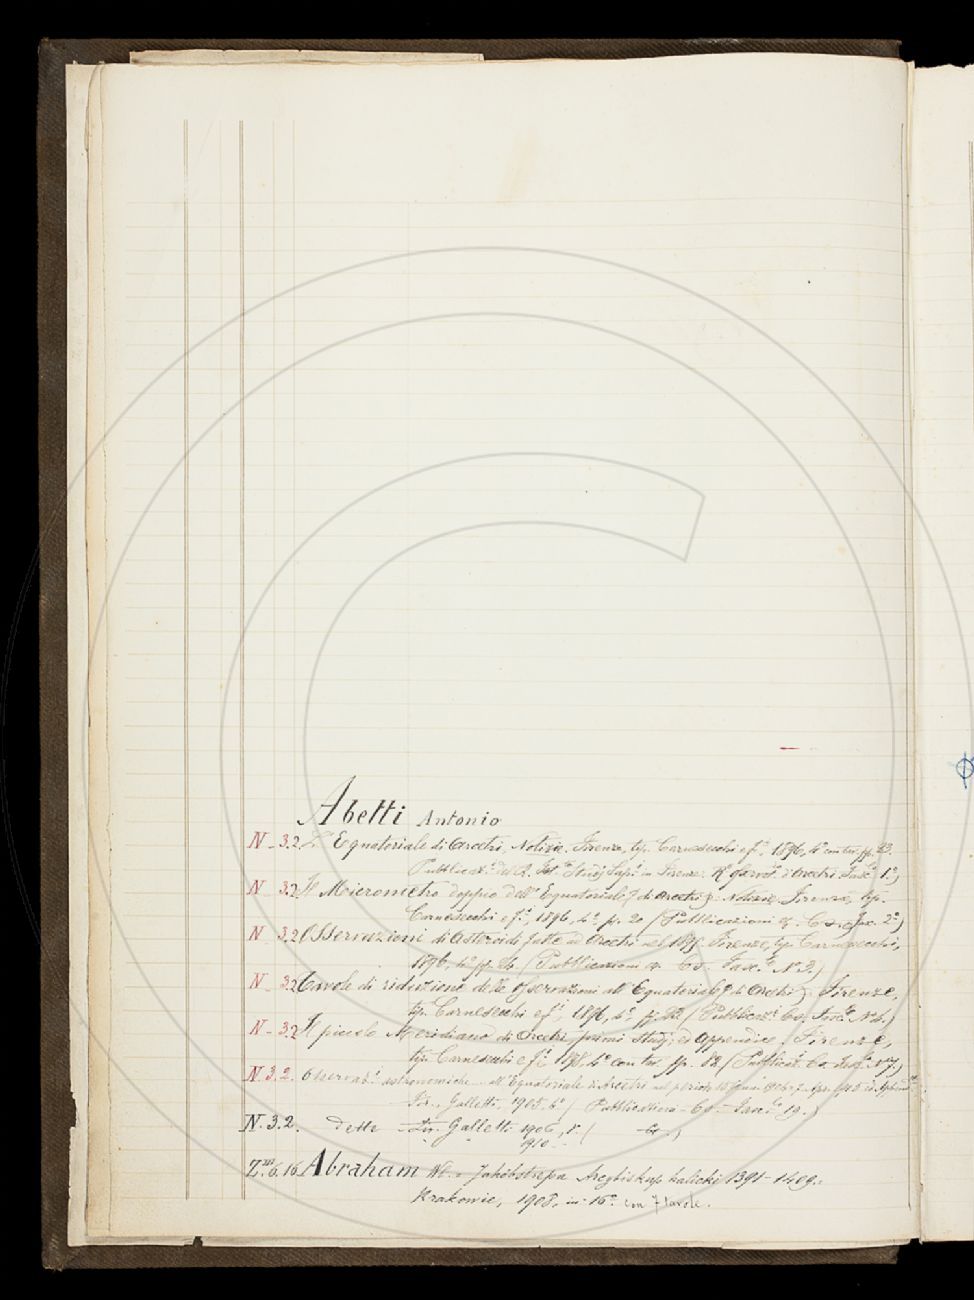 Abetti Antonio
N_ 3.2 L' Equatoriale di Arcetri, Notizie, Firenze, tip. Carnesecchi e f.i, 1896, 4° con tav. pp.
Pubblicaz.i del R. Ist.to Studj Sup.i in Firenze. R.° Osservat.° d'Arcetri Fasc.° 1.°)
N_ 3.2 Il Micrometro doppio dell' Equatoriale di Arcetri. Notizie Firenze, tip.
Carnesecchi e f.i, 1896, 4.°, pp. 20 (Pubblicazioni Fasc. 2.°)
N_ 3.2 Osservazioni di Asteroidi fatte ad Arcetri nel 1895. Firenze, tip. Carnesecchi,
1896, 4.° pp. (Pubblicazioni Fasc.° N° 3.)
N_ 3.2 Tavole di riduzione delle Osservazioni all' Equatoriale di Arcetri. Firenze,
tip. Carnesecchi e f.i, 1896, 4.° pp. (Pubblicaz.i Fasc.° N° 4.)
N_ 3.2 Il piccolo Meridiano di Arcetri primi Studj ed Appendice. Firenze,
tip. Carnesecchi e f.i 4.° con tav. pp. (Pubblicaz.i Fasc.°
N.3.2. Osservaz.i astronomiche all' Equatoriale di Arcetri
Fir., Galletti, 1905. 4° (Pubblicazioni Fasc.° 19.)
N.3.2. dette Fir. Galletti 1906,
" " 1910
6.16 Abraham Wł. Jakób Strepa Arcybiskup halicki 1391-1409.
Krakowie, 1908, in-16.° con 7 tavole.